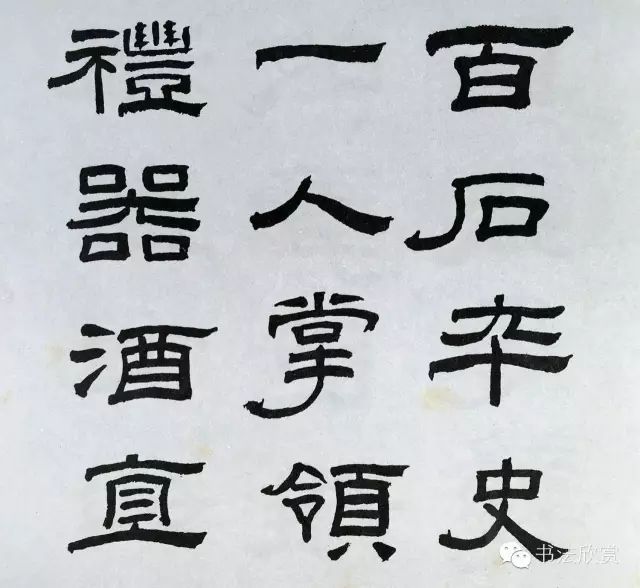 百石卒史
一人掌領
禮器酒直
书法欣赏